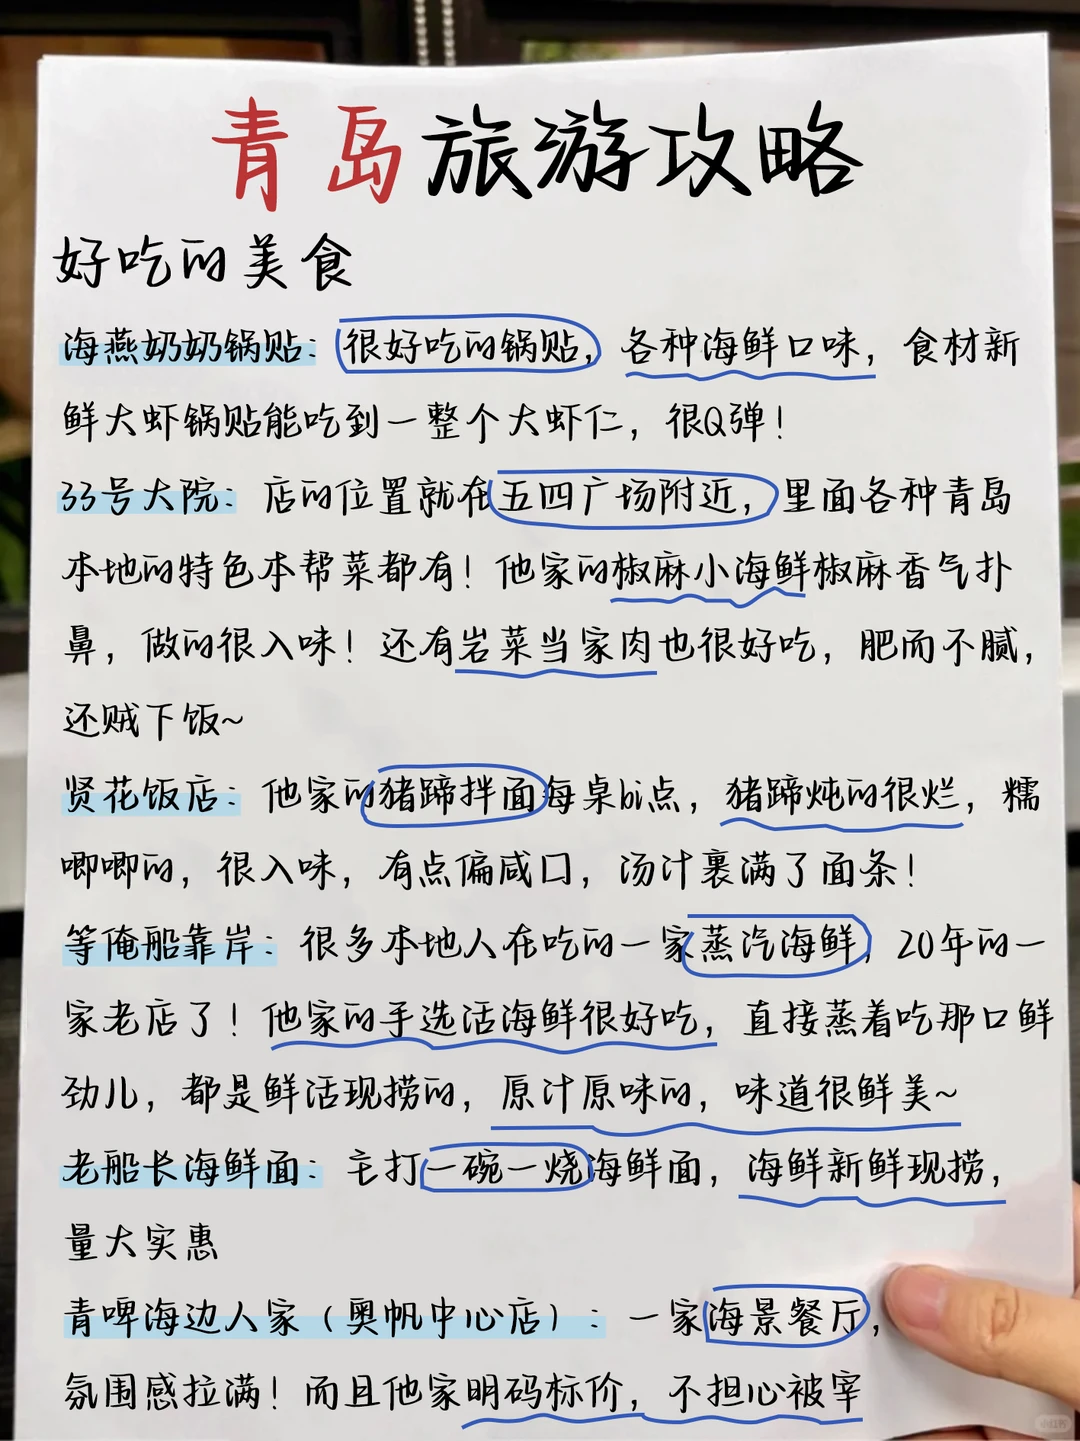 青岛旅游攻略
好吃的美食
海燕奶奶锅贴：很好吃的锅贴，各种海鲜口味，食材新
鲜大虾锅贴能吃到一整个大虾仁，很Q弹！
33号大院：店的位置就在五四广场附近，里面各种青岛
本地的特色本帮菜都有！他家的椒麻小海鲜椒麻香气扑
鼻，做的很入味！还有岩菜当家肉也很好吃，肥而不腻，
还贼下饭~
贤花饭店：他家的猪蹄拌面每桌bi点，猪蹄炖的很烂，糯
唧唧的，很入味，有点偏咸口，汤汁裹满了面条！
等俺船靠岸：很多本地人在吃的一家蒸汽海鲜，20年的一
家老店了！他家的手选活海鲜很好吃，直接蒸着吃那口鲜
劲儿，都是鲜活现捞的，原汁原味的，味道很鲜美~
老船长海鲜面：主打一碗一烧海鲜面，海鲜新鲜现捞，
量大实惠
青啤海边人家（奥帆中心店）：一家海景餐厅，
氛围感拉满！而且他家明码标价，不担心被宰
小红书